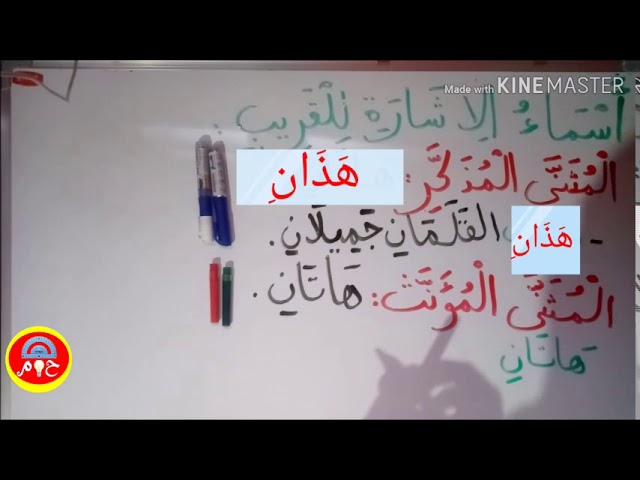 Made with KINEMASTER
أَسْمَاءُ الإِشَارَةِ لِلْقَرِيبِ :
الْمُثَنَّى الْمُذَكَّرِ : هَذَانِ
- هَذَانِ القَلَمَانِ جَمِيلَانِ .
الْمُثَنَّى الْمُؤَنَّث : هَاتَانِ .
هَاتَانِ